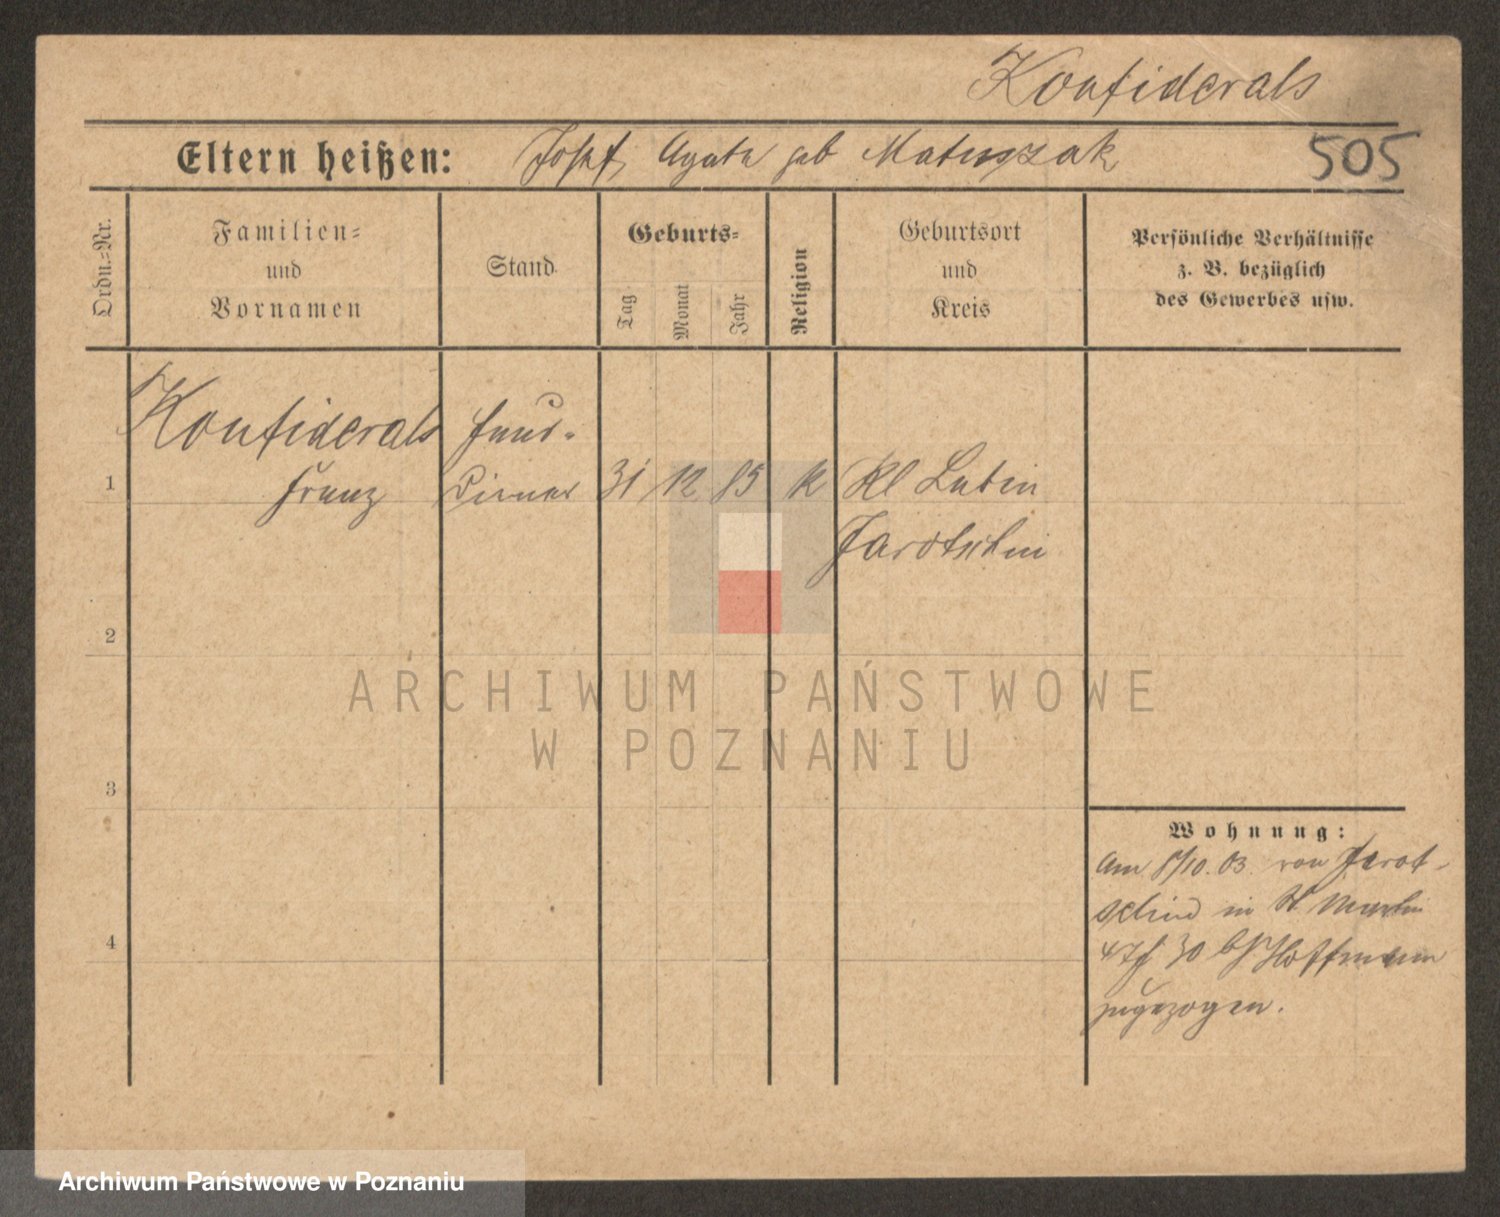 Konfiderals
Eltern heißen: Josef, Agata geb Matuszak
505
Ordn.-Nr.
Familien-
und
Vornamen
Stand
Geburts-
Tag
Monat
Jahr
Religion
Geburtsort
und
Kreis
Persönliche Verhältnisse
z. B. bezüglich
des Gewerbes usw.
Konfiderals
Franz
Haus-
Diener
1
31 12 85 k Kl Lubin
Jarotschin
2
ARCHIWUM PAŃSTWOWE
W POZNANIU
3
Wohnung:
Am /10. 03. von Jarot-
schin in St Martin
30 Hoffmann
zugezogen.
4
Archiwum Państwowe w Poznaniu